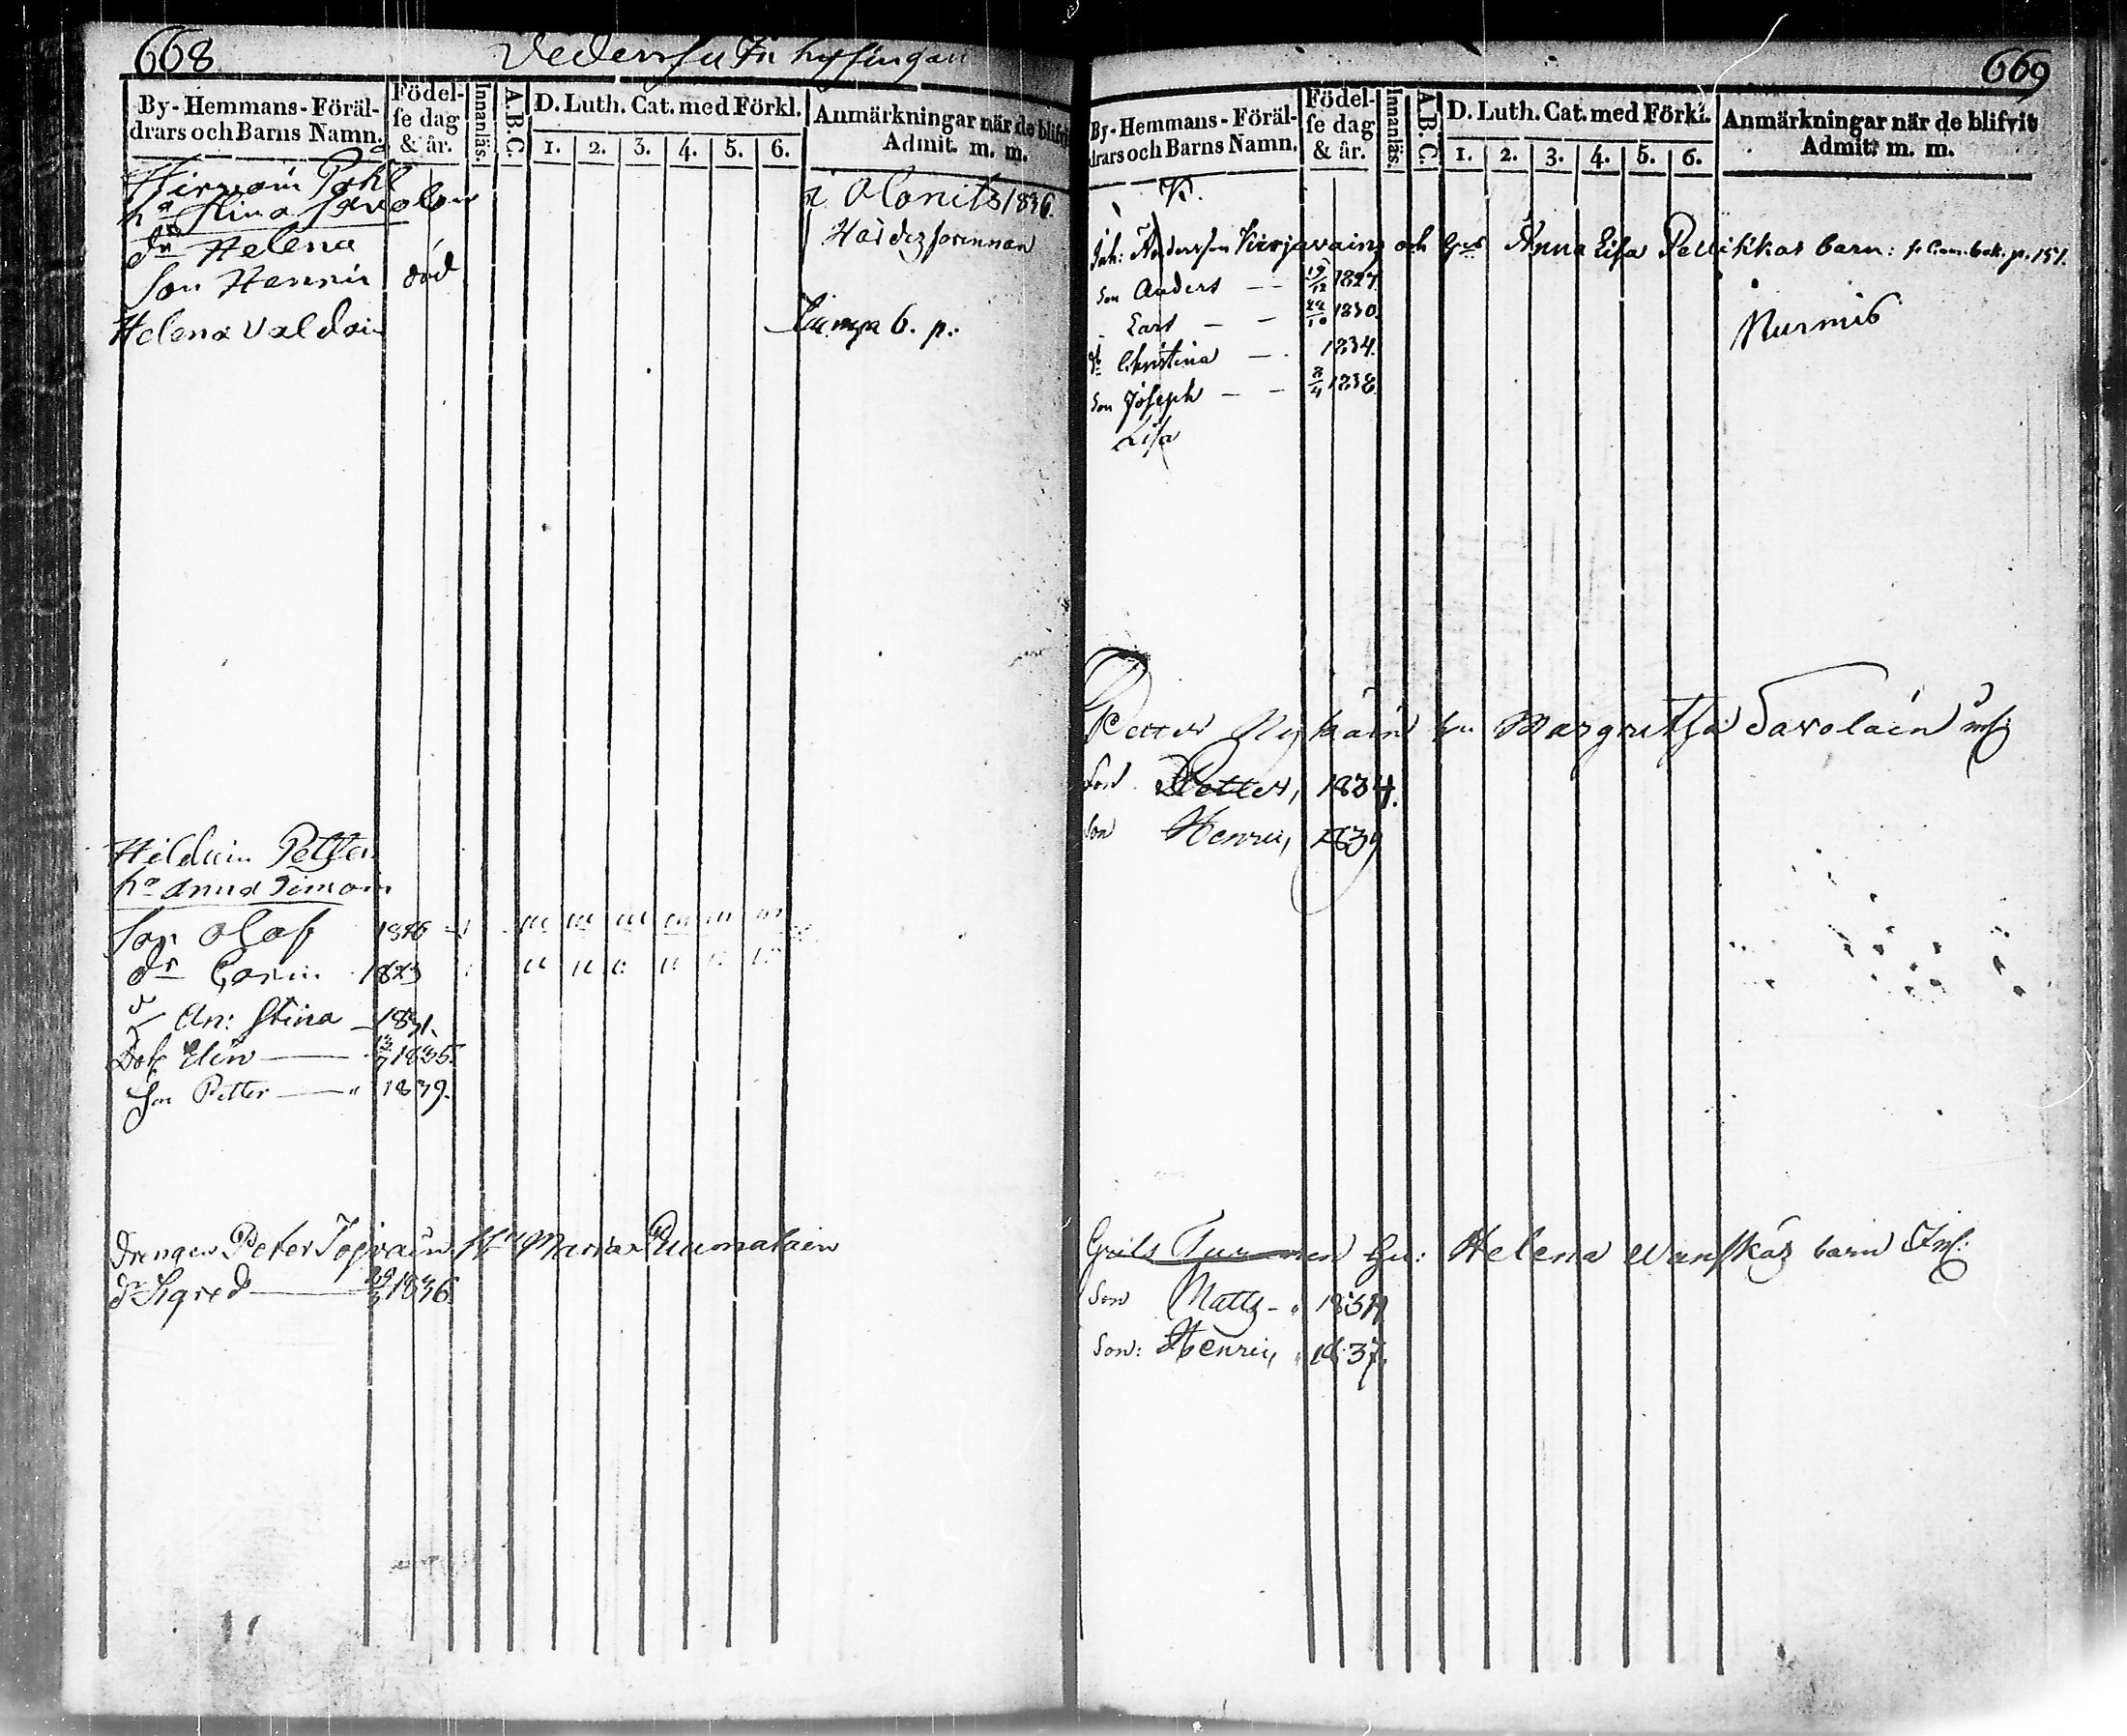 668
By-Hemmans-Föräl-
drars och Barns Namn.
Födel-
se dag
& år.
Innanläs.
A.B.C.
D. Luth. Cat. med Förkl.
1. 2. 3. 4. 5. 6.
Anmärkningar när de blifvit
Admit. m. m.
Hirvoin Pohl
ha Stina Savolain
i Olonits 1836.
dr Helena
Son Henric död
Helena Valdain
Lampa b. p.
Petter
ha Anna Simoin
Son Olof 1816
dr Carin 1823
An: Stina 1831.
Dotr Elin 13/7 1835.
Son Petter " 1839.
Drengen Peter Hu Maria Puumalain
dr Sigred 1836.
669
By-Hemmans-Föräl-
drars och Barns Namn.
Födel-
se dag
& år.
Innanläs.
A.B.C.
D. Luth. Cat. med Förkl.
1. 2. 3. 4. 5. 6.
Anmärkningar när de blifvit
Admit: m. m.
K.
Joh: Andersson Kirjavains och hust Anna Lisa Pellikkas barn: p. 151.
Son Anders — — 19/12 1827.
Lars — — 22/10 1830.
dr Christina — 1834.
Nurmis
Son Joseph — — 8/4 1838.
Lisa
Petter Nykäin hu Margretha Savolain
Son Petter, 1834.
Son Henric, 1839
Grels Turunen hu: Helena Wanskas barn Inh:
Son Matts - " 1834
Son: Henric, " 1837.